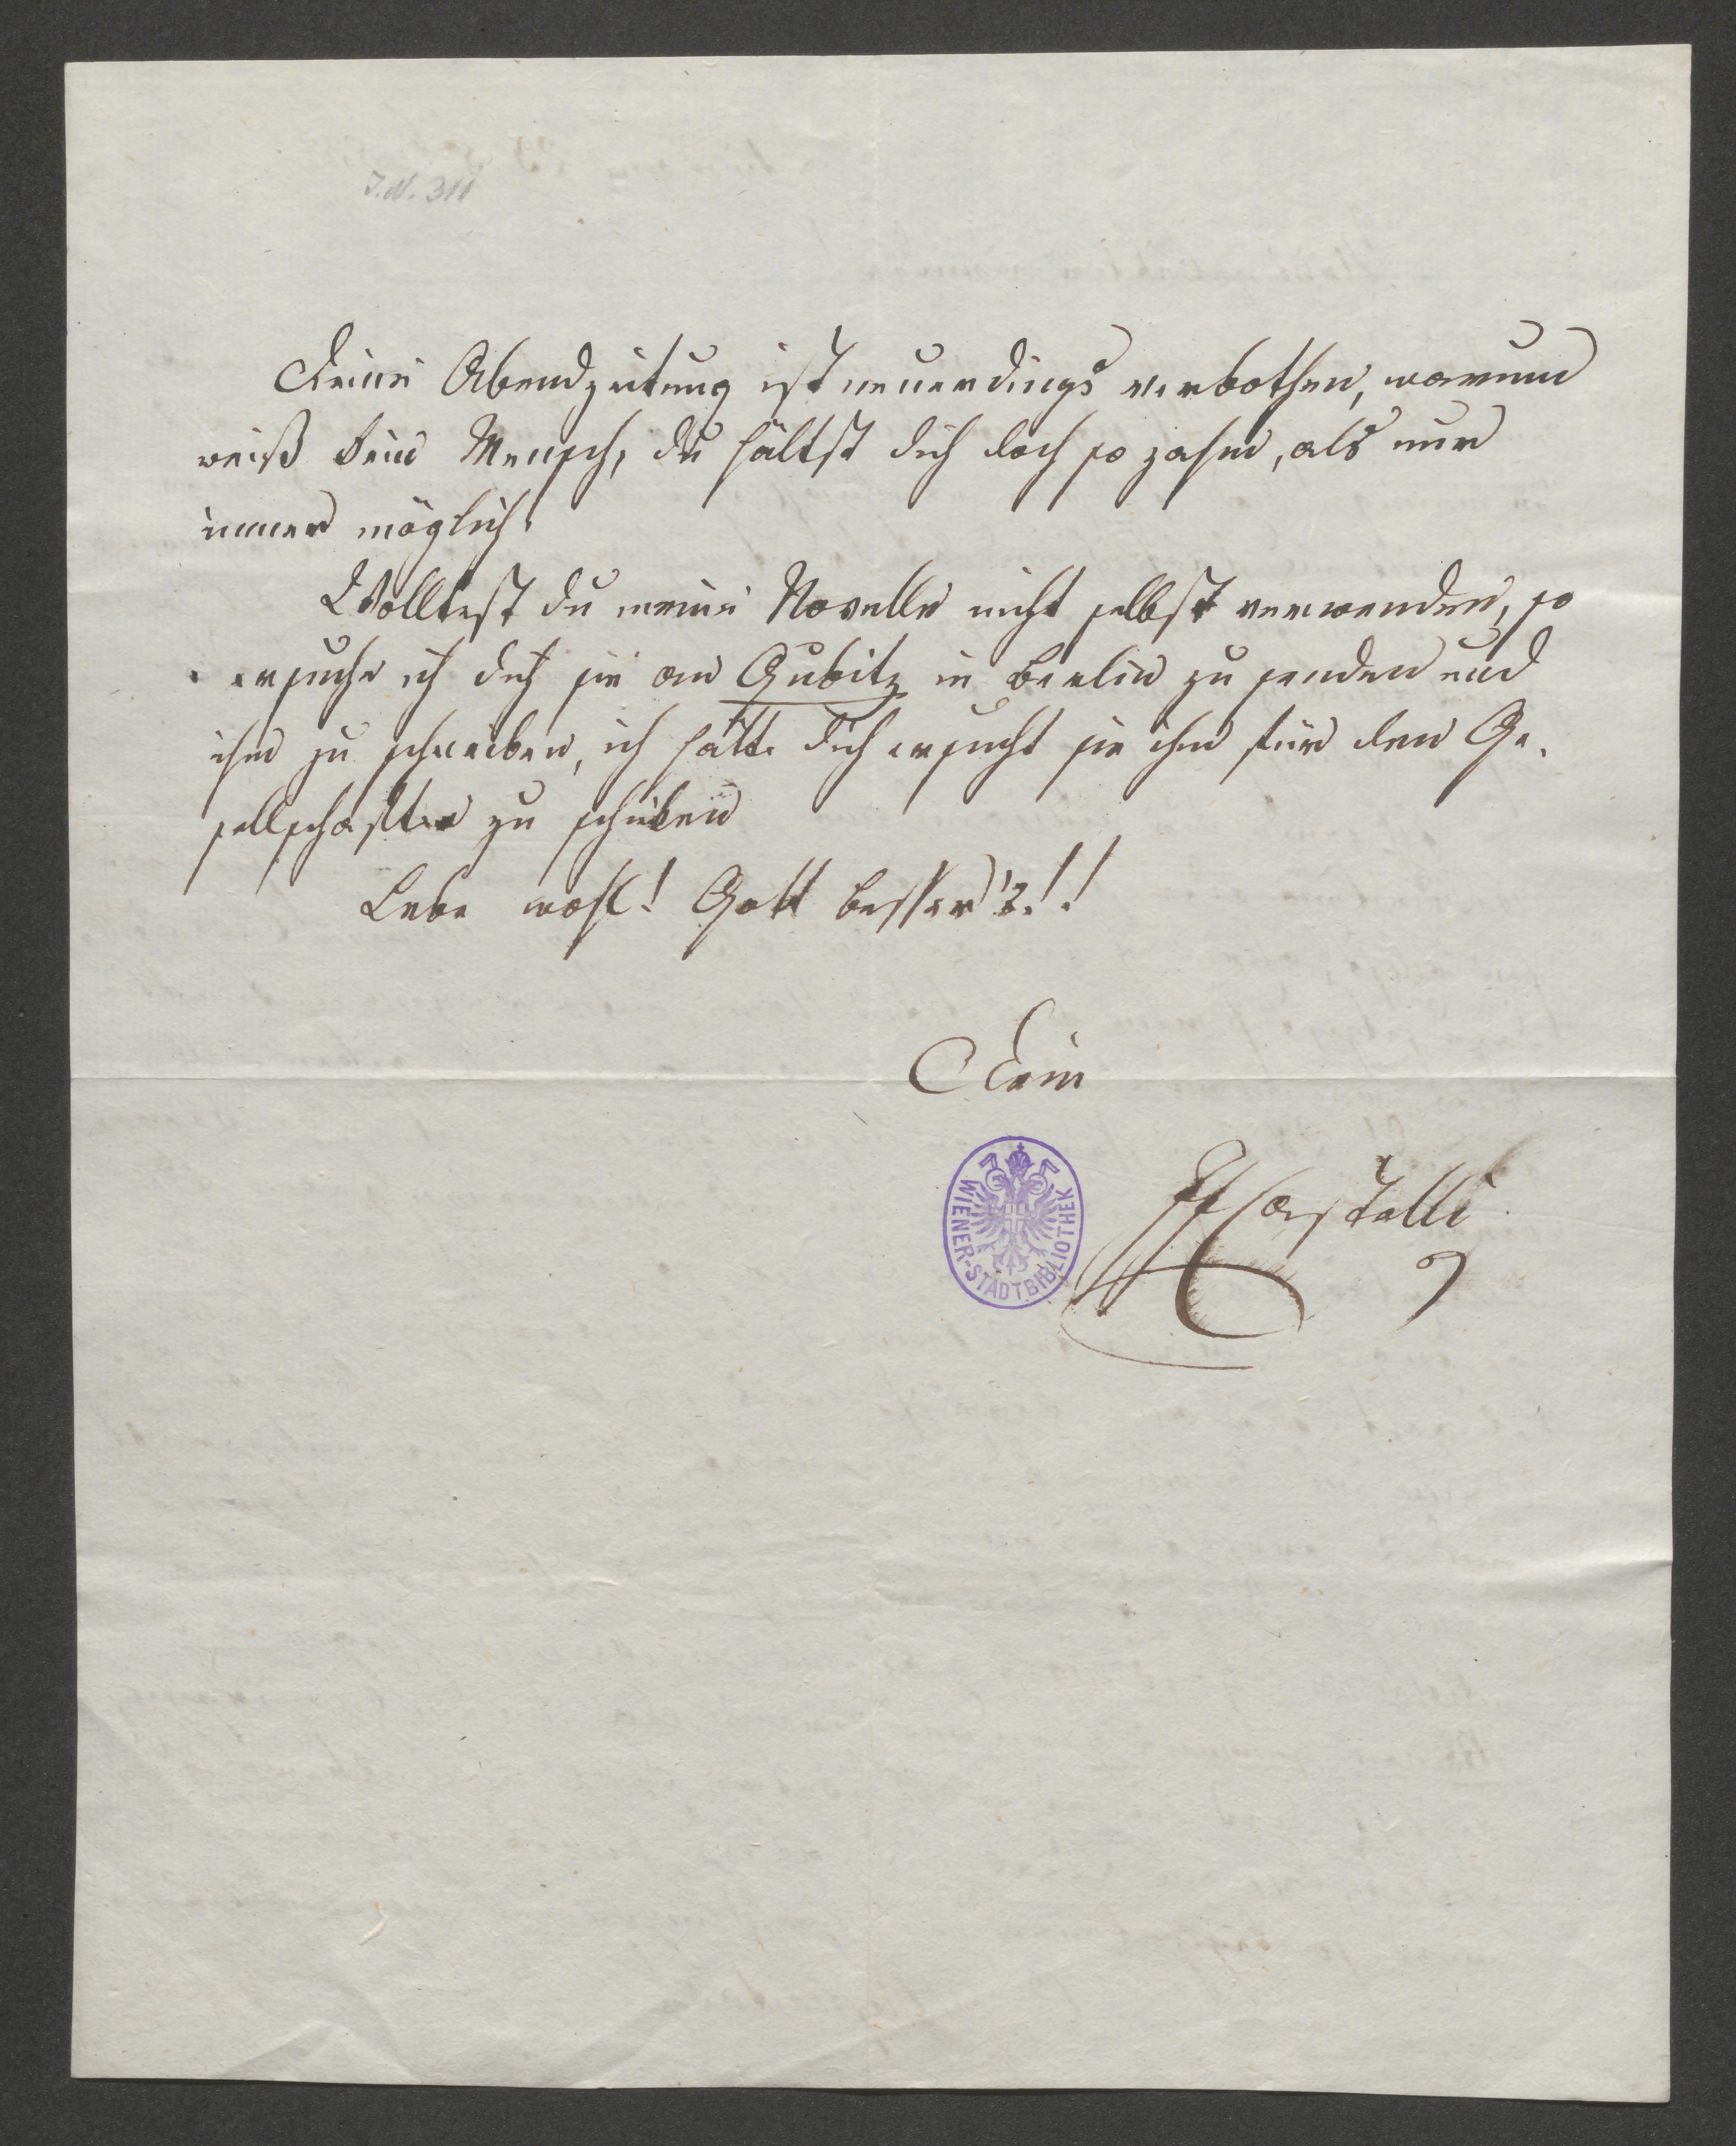 I.N. 311
Deine Abendzeitung ist neuerdings verbothen, warum
weiß kein Mensch, du hältst dich doch so zahm, als nur
immer möglich.
Wolltest du meine Novelle nicht selbst verwenden, so
ersuche ich dich sie an Gubitz in Berlin zu senden und
ihm zu schreiben, ich hätte dich ersucht sie ihm für den Ge-
sellschafter zu schicken
Lebe wohl! Gott besser's!!
Dein
Castelli
WIENER-STADTBIBLIOTHEK